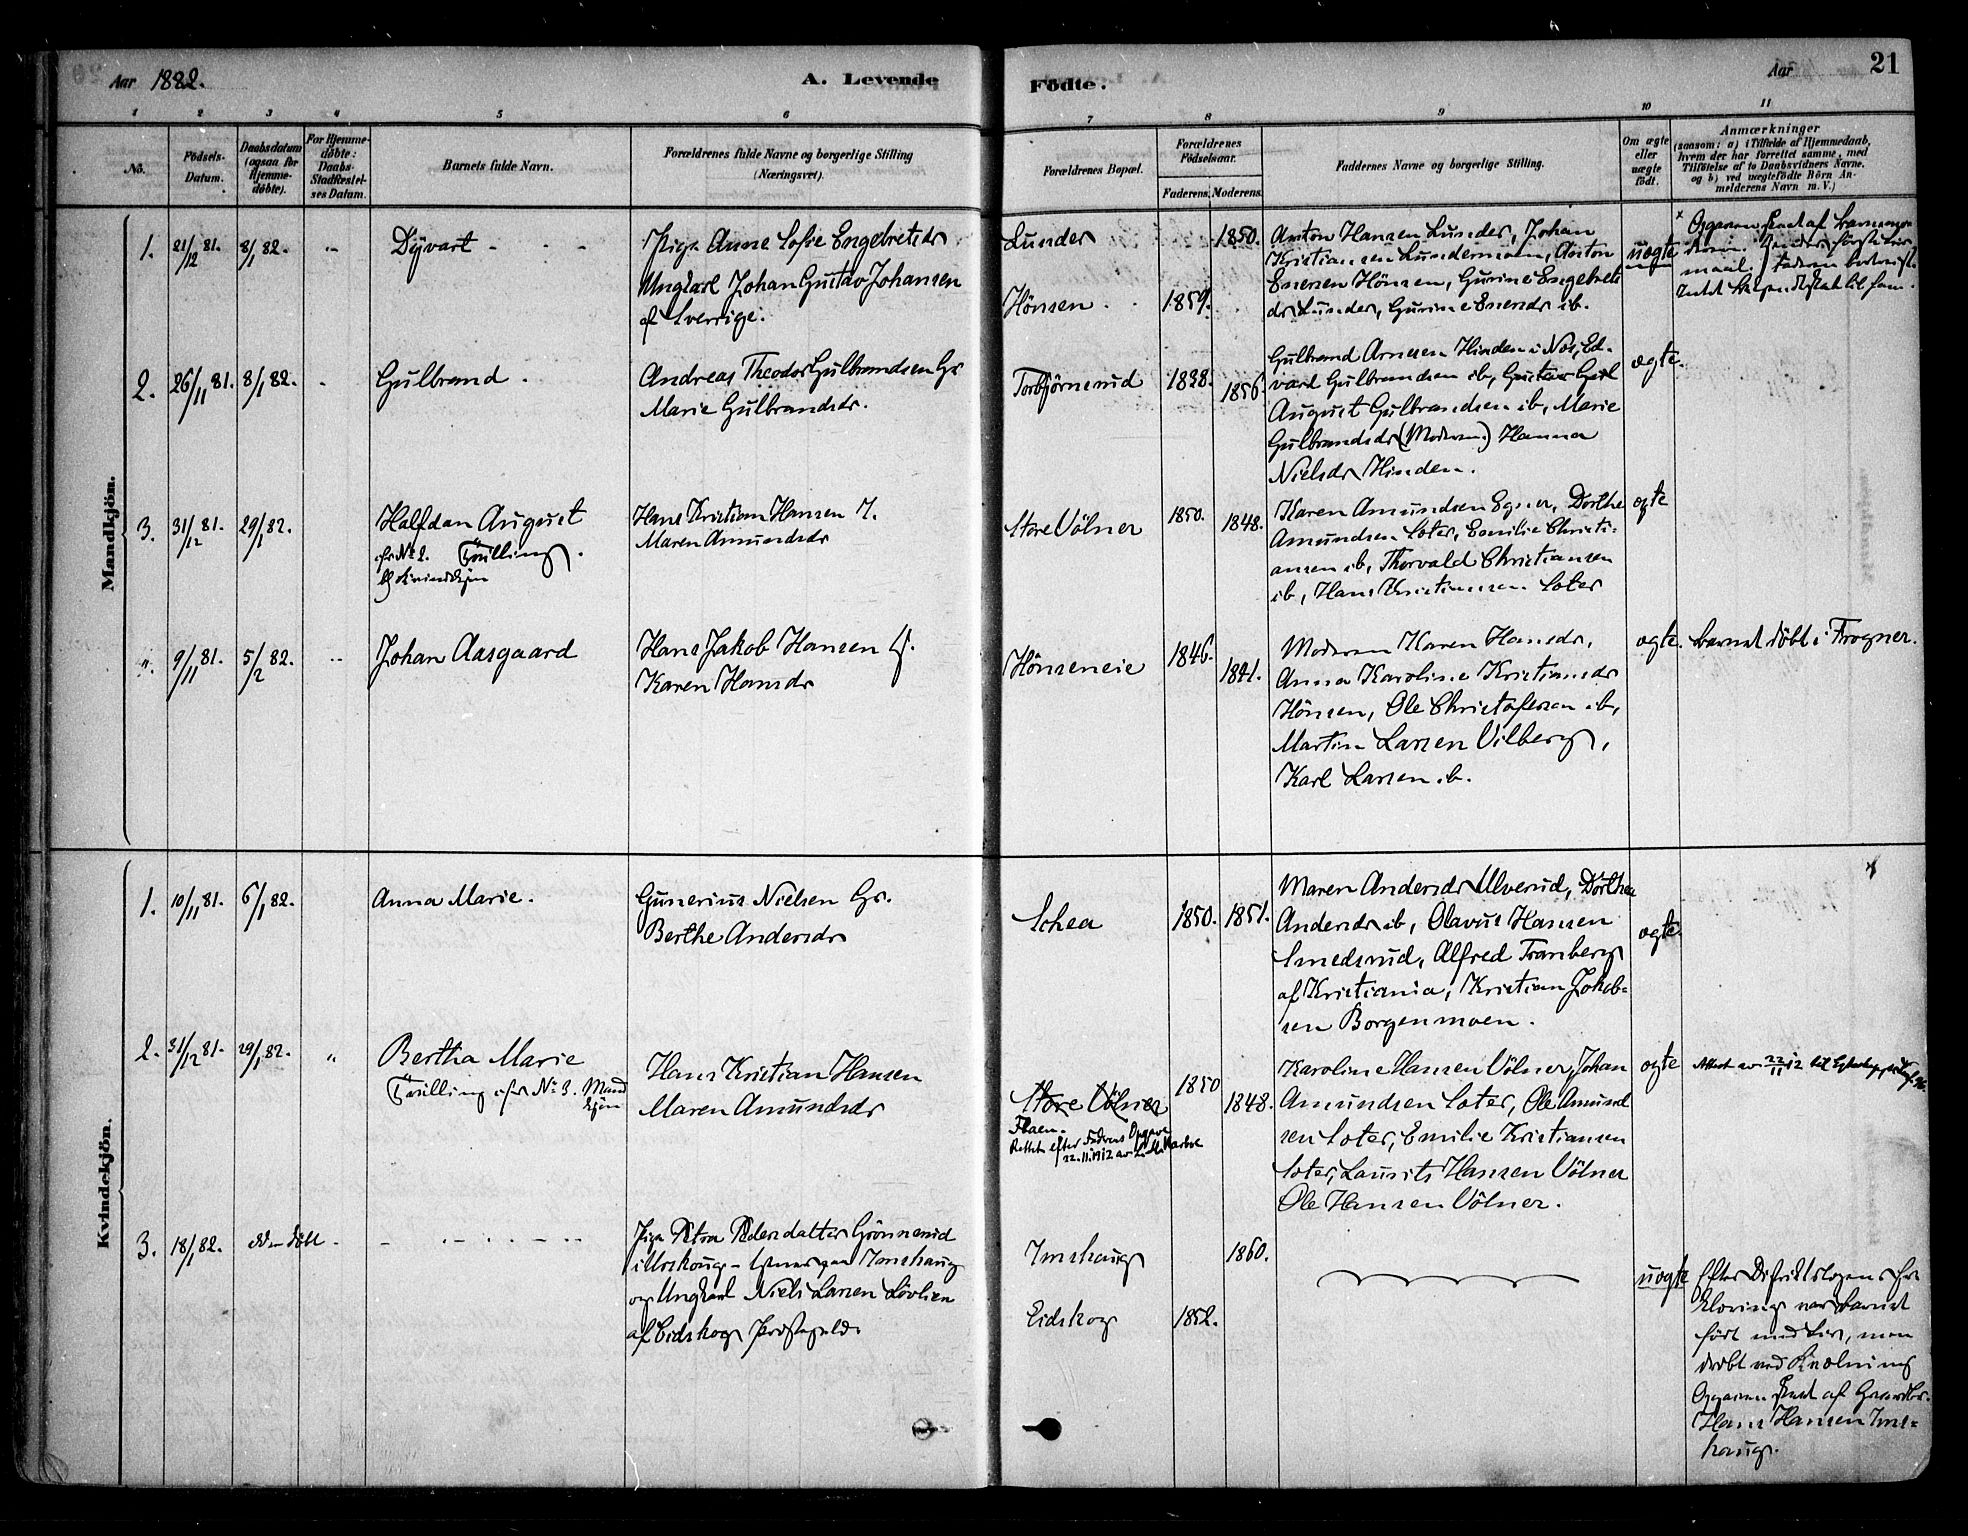 Aar 1882.
A. Levende
Födte.
Aar
21
1
2
3
4
5
6
7
8
9
10
11
No.
Födsels-
Datum.
Daabsdatum
(ogsaa for
Hjemme-
döbte).
For Hjemme-
döbte:
Daabs-
Stadfæstel-
ses Datum.
Barnets fulde Navn.
Forældrenes fulde Navne og borgerlige Stilling
(Næringsvei).
Forældrenes Bopæl.
Forældrenes
Födselsaar.
Faderens.
Moderens.
Faddernes Navne og borgerlige Stilling.
Om ægte
eller
uægte
födt.
Anmærkninger
(saasom: a) i Tilfælde af Hjemmedaab,
hvem der har forrettet samme, med
Tilföielse af to Daabsvidners Navne,
og b) ved uægtefödte Börn An-
melderens Navn m. V.)
Mandkjön.
1.
21/12 81.
8/1 82.
Dyvart
Pige Anne Sofie Engebretsdr
Ungkarl Johan Gustav Johansen
af Sverrige.
Lunder
Hönsen.
1859.
1850.
Anton Hansen Lunder, Johan
Kristiansen Lundermoen, Anton
Enersen Hönsen, Gurine Engebrets
dr Lunder, Gurine Enersdr ib.
uægte
2.
26/11 81.
8/1 82.
Gulbrand.
Andreas Theodor Gulbrandsen Gr
Marie Gulbrandsdr.
Torbjörnsrud
1838.
1856
Gulbrand Arnesen Hinden i Næs, Ed-
vard Gulbrandsen ib, Gustav Carl
August Gulbrandsen ib, Marie
Gulbrandsdr (Moderen.) Hanna
Nielsdr Hinden.
ægte.
3.
31/12 81.
29/1 82.
Halfdan August
cfr No 2. Tvilling.
bl Kvindekjön
Hans Kristian Hansen
Maren Amundsdr
Store Völner
1850.
1848.
Karen Amundsen Egner, Dorthe
Amundsen Soter, Emilie Christi-
ansen ib, Thorvald Christiansen
ib, Hans Kristiansen Soter
ægte
"
9/11 81.
5/2 82.
Johan Aasgaard
Hans Jakob Hansen
Karen Hansdr
Hönseneie
1846.
1841.
Moderen Karen Hansdr,
Anna Karoline Kristiansdr
Hönsen, Ole Christofersen ib,
Martin Larsen Vilberg,
Karl Larsen ib.
ægte.
barnet döbt i Frogner.
Kvindekjön.
1.
10/11 81.
6/1 82.
Anna Marie.
Gunerius Nielsen Gr.
Berthe Andersdr
Schea
1850.
1851.
Maren Andersdr Ulverud, Dorthea
Andersdr ib, Olavus Hansen
Smedsrud, Alfred Tranberg
af Kristiania, Kristian Jakob-
sen Borgenmoen.
ægte
2.
31/12 81.
29/1 82.
"
Bertha Marie
Tvilling cfr No 3. Mand
kjön
Hans Kristian Hansen
Maren Amundsdr
Store Völner
Flaen.
Rettet efter Faderens Opgave
22.11.1912 av
1850
1848.
Karoline Hansen Völner, Johan
Amundsen Soter, Ole Amund
sen Soter, Emilie Kristiansen
Soter, Laurits Hansen Völner
Ole Hansen Völner.
ægte
Attest av 22/11 12 til
3.
18/1 82.
död-döbt
Pige Petra Pedersdatter Grönnerud
i Urskoug - tjener paa Imshaug
og Ungkarl Niels Larsen Lövlien
af Eidskog Præstegjeld.
Imshaug
Eidskog
1852.
1860.
uægte
Efter Distriktslægens Er
klæring var barnet
född med Liv, men
dræbt ved Kvælning
Opgaven sendt af Gaardbr.
Hans Hansen Ims-
haug.